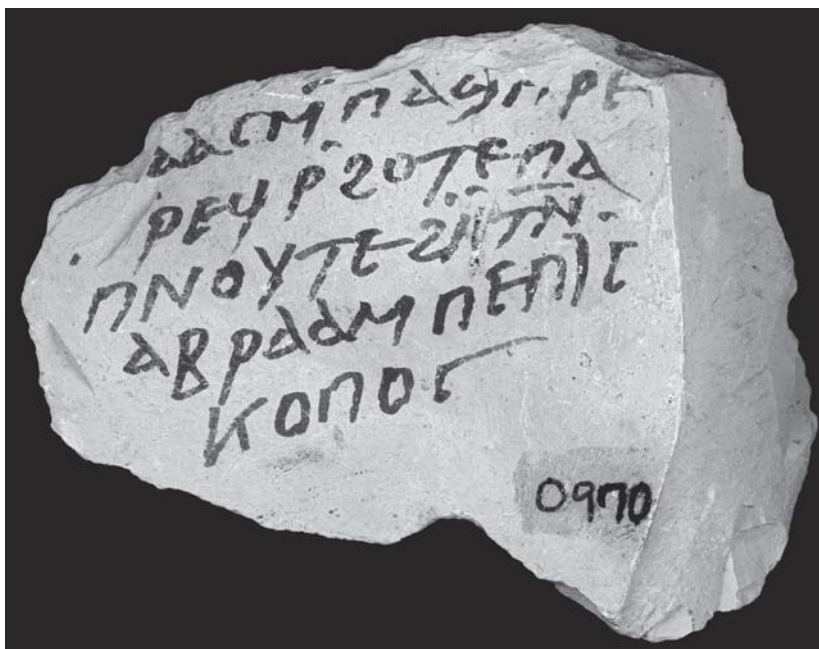 ⲁⲁⲥⲙ̇ⲡⲁϣⲏⲣⲉ
ⲣⲉϥⲣ̇ϩⲟⲧⲉⲡⲁ
ⲡⲛⲟⲩⲧⲉϩⲓ̈ⲧⲛ̄
ⲁⲃⲣⲁⲁⲙⲡⲉⲡⲓⲥ
ⲕⲟⲡⲟⲥ
0970